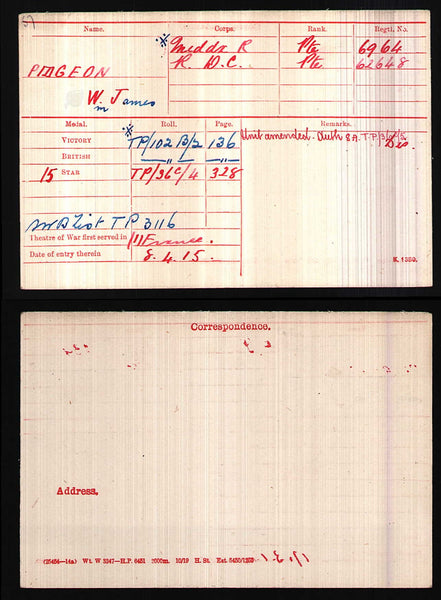 57
Name. Corps. Rank. Regtl. No.
※ Middx R Pte 6964
PIDGEON
H. D. C. Pte 62648
Wm James
Medal. Roll. Page. Remarks.
VICTORY ※ TP/102 B/2 136 Unit amended. Auth S.A.T.P/3/
BRITISH —„— —„—
15 STAR TP/36C/4 328
TP 3116
Theatre of War first served in (1) France.
Date of entry therein 8.4.15.
K. 1380.
Correspondence.
Address.
(25454—14a) Wt. W 5347—H.P. 6451 2000m. 10/19 H. St. Est. 5450/1280